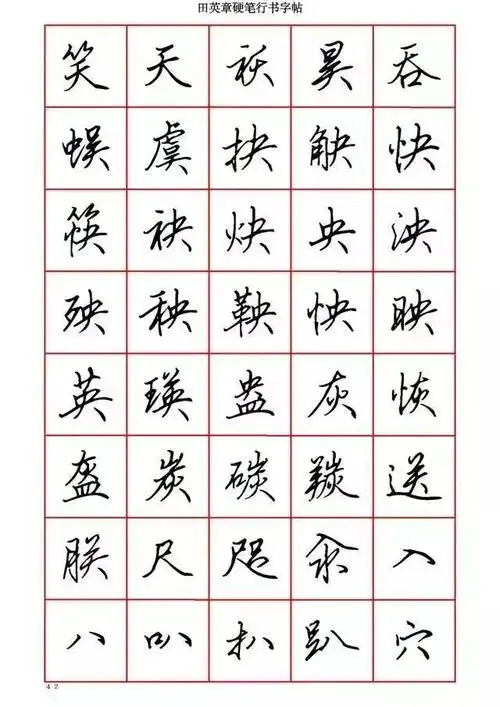 田英章硬笔行书字帖
笑 天 袄 昊 吞
蜈 虞 抉 觖 快
筷 袂 炔 央 泱
殃 秧 鞅 怏 映
英 瑛 盎 灰 恢
盔 炭 碳 羰 送
朕 尺 咫 汆 入
八 叭 扒 趴 穴
42